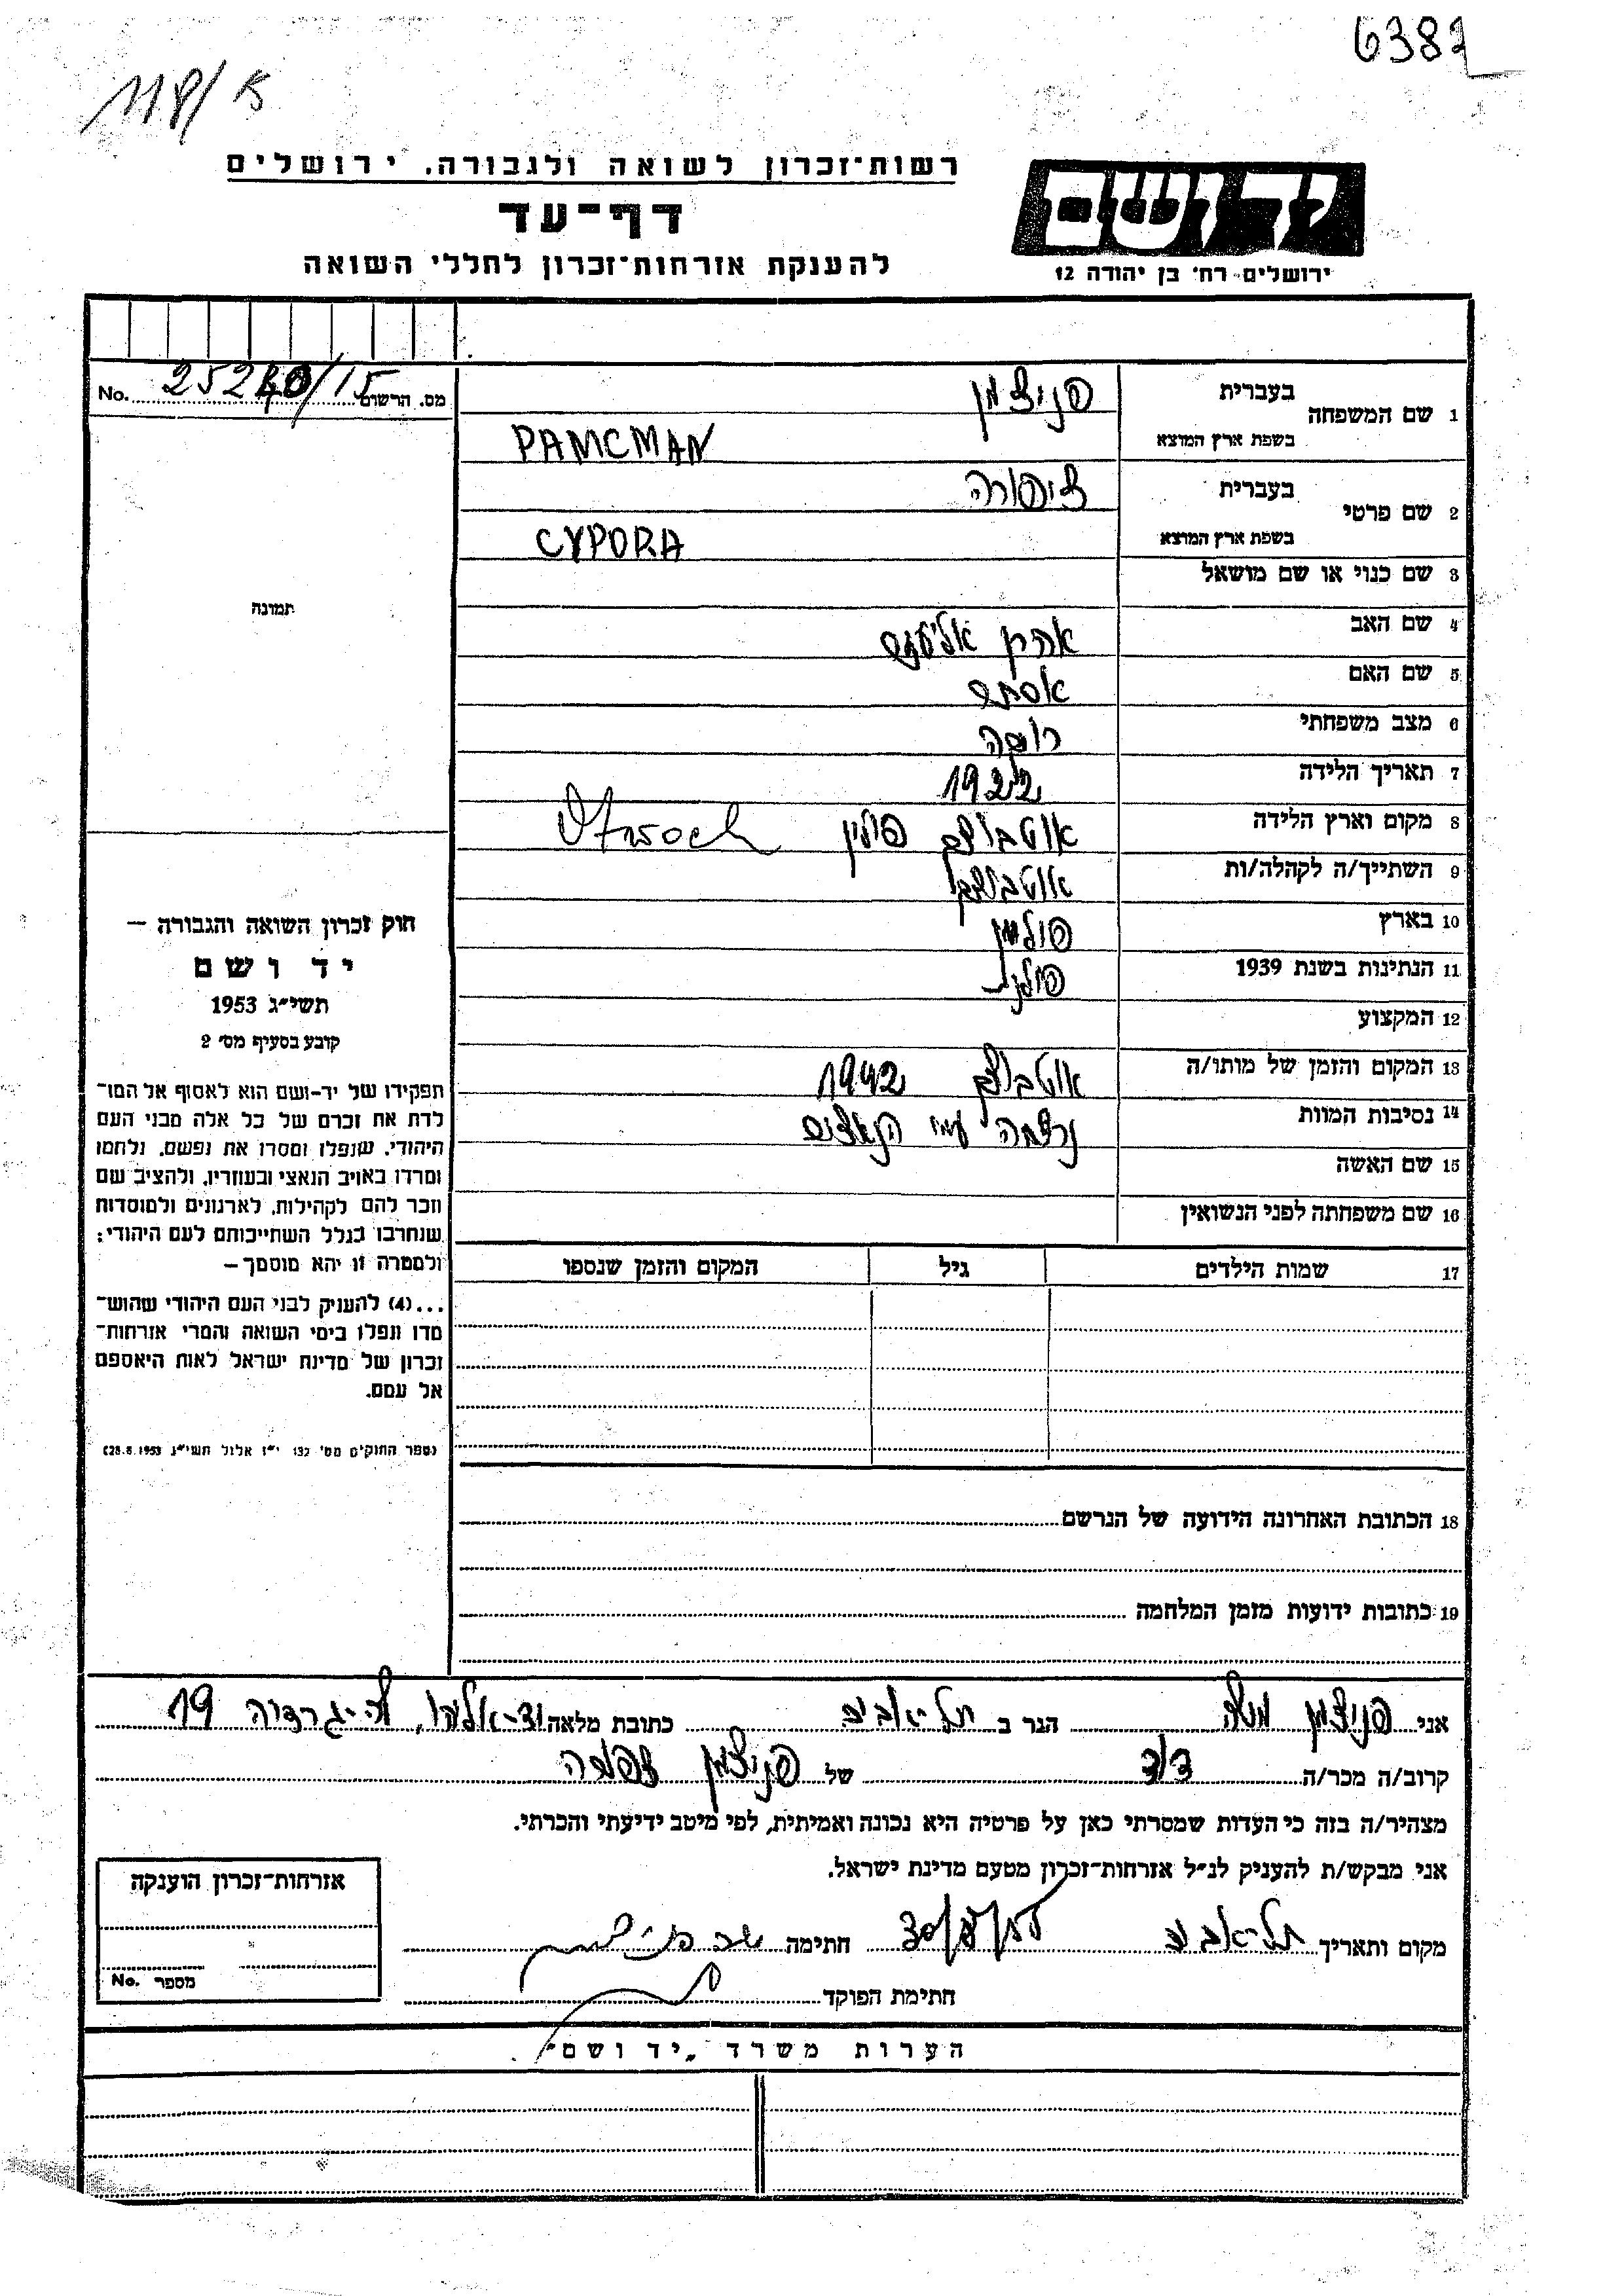 6382
118/ א
רשות־זכרון לשואה ולגבורה, ירושלים
דף־עד
להענקת אזרחות־זכרון לחללי השואה
יד ושם
ירושלים־ רח׳ בן יהודה 12
מס. הרשום 15/ No.
1 שם המשפחה בעברית פניצמן
בשפת ארץ המוצא PAMCMAN
2 שם פרטי בעברית ציפורה
בשפת ארץ המוצא CYPORA
3 שם כנוי או שם מושאל
4 שם האב אהרן אליעזר
5 שם האם אסתר
6 מצב משפחתי רווקה
7 תאריך הלידה 1922
8 מקום וארץ הלידה אוטבוצק פולין Otwock
9 השתייך/ה לקהלה/ות אוטבוצק
10 בארץ פולין
11 הנתינות בשנת 1939 פולנית
12 המקצוע
13 המקום והזמן של מותו/ה אוטבוצק 1942
14 נסיבות המוות נרצחה ע״י הנאצים
15 שם האשה
16 שם משפחתה לפני הנשואין
17 שמות הילדים גיל המקום והזמן שנספו
18 הכתובת האחרונה הידועה של הנרשם
19 כתובות ידועות מזמן המלחמה
תמונה
חוק זכרון השואה והגבורה —
יד ושם
תשי״ג 1953
קובע בסעיף מס׳ 2
תפקידו של יד־ושם הוא לאסוף אל המו־
לדת את זכרם של כל אלה מבני העם
היהודי, שנפלו ומסרו את נפשם, נלחמו
ומרדו באויב הנאצי ובעוזריו, ולהציב שם
וזכר להם לקהילות, לארגונים ולמוסדות
שנחרבו בגלל השתייכותם לעם היהודי:
ולמטרה זו יהא מוסמך—
...(4) להעניק לבני העם היהודי שהוש־
מדו ונפלו בימי השואה והמרי אזרחות־
זכרון של מדינת ישראל לאות היאספם
אל עמם.
(ספר החוקים מס׳ 132 י״ז אלול תשי״ג 28.8.1953)
אני פניצמן משה הגר ב תל־אביב כתובת מלאה 19
קרוב/ה מכר/ה דוד של פניצמן צפורה
מצהיר/ה בזה כי העדות שמסרתי כאן על פרטיה היא נכונה ואמיתית, לפי מיטב ידיעתי והכרתי.
אני מבקש/ת להעניק לנ״ל אזרחות־זכרון מטעם מדינת ישראל.
מקום ותאריך תל־אביב חתימה
חתימת הפוקד
אזרחות־זכרון הוענקה
מספר No.
הערות משרד „יד ושם״